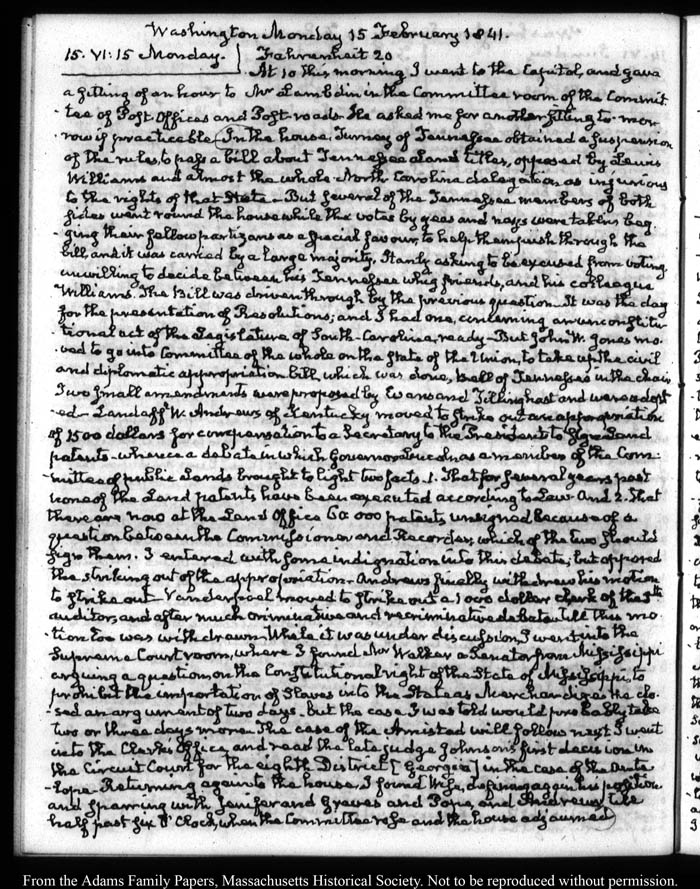 Washington Monday 15 February 1841.
15. VI:15 Monday. Fahrenheit 20
At 10 this morning I went to the Capitol, and gave
a sitting of an hour to Mr Lambdin in the Committee room of the Commit-
tee of Post-Offices and Post-roads. He asked me for another sitting to-mor-
row if practicable. In the house, Turney of Tennessee obtained a suspension
of the rules, to pass a bill about Tennessee Land titles, opposed by Lewis
Williams and almost the whole North Carolina delegation as injurious
to the rights of that State – But several of the Tennessee members of both
sides went round the house while the votes by yeas and nays were taken beg
ging their fellow partizans as a special favour, to help them push through the
bill, and it was carried by a large majority. Stanly asking to be excused from voting
unwilling to decide between his Tennessee whig friends, and his colleague
Williams. The Bill was driven through by the previous question – It was the day
for the presentation of Resolutions; and I had one, concerning an unconstitu-
tional act of the Legislature of South-Carolina, ready – But John W. Jones mo-
ved to go into Committee of the whole on the state of the Union, to take up the civil
and diplomatic appropriation bill, which was done, Bell of Tennessee in the chair
Two small amendments were proposed by Evans and Tillinghast and were adopt
ed – Landaff W. Andrews of Kentucky moved to strike out an appropriation
of 1500 dollars for compensation to a Secretary to the President to sign Land
patents – whence a debate in which Governor Lucas as a member of the Com-
mittee of public Lands brought to light two facts. 1. That for several years past
none of the Land patents have been executed according to Law. And 2. That
there are now at the Land Office 60 000 patents, unsigned because of a
question between the Commissioner and Recorder, which of the two should
sign them. I entered with some indignation into this debate; but opposed
the striking out of the appropriation. Andrews finally withdrew his motion
to strike out – Vanderpoel moved to strike out a 1000 dollar clerk of the 5th
auditor, and after much criminative and recriminative debate till this mo-
tion too was withdrawn. While it was under discussion, I went into the
Supreme Court room, where I found Mr Walker a Senator from Mississippi
arguing a question on the Constitutional right of the State of Mississippi, to
prohibit the importation of Slaves into the State as Merchandize. He clo-
sed an argument of two days – but the case I was told would probably take
two or three days more. The case of the Amistad will follow next. I went
into the Clerks Office, and read the late judge Johnson's first decision in
the Circuit Court for the eighth District [Georgia] in the case of the Ante-
lope. Returning again to the house, I found Wise, defining again his position
and sparring with Jenifer and Graves and Pope, and Andrews, till
half past six O'Clock, when the Committee rose and the house adjourned
From the Adams Family Papers, Massachusetts Historical Society. Not to be reproduced without permission.